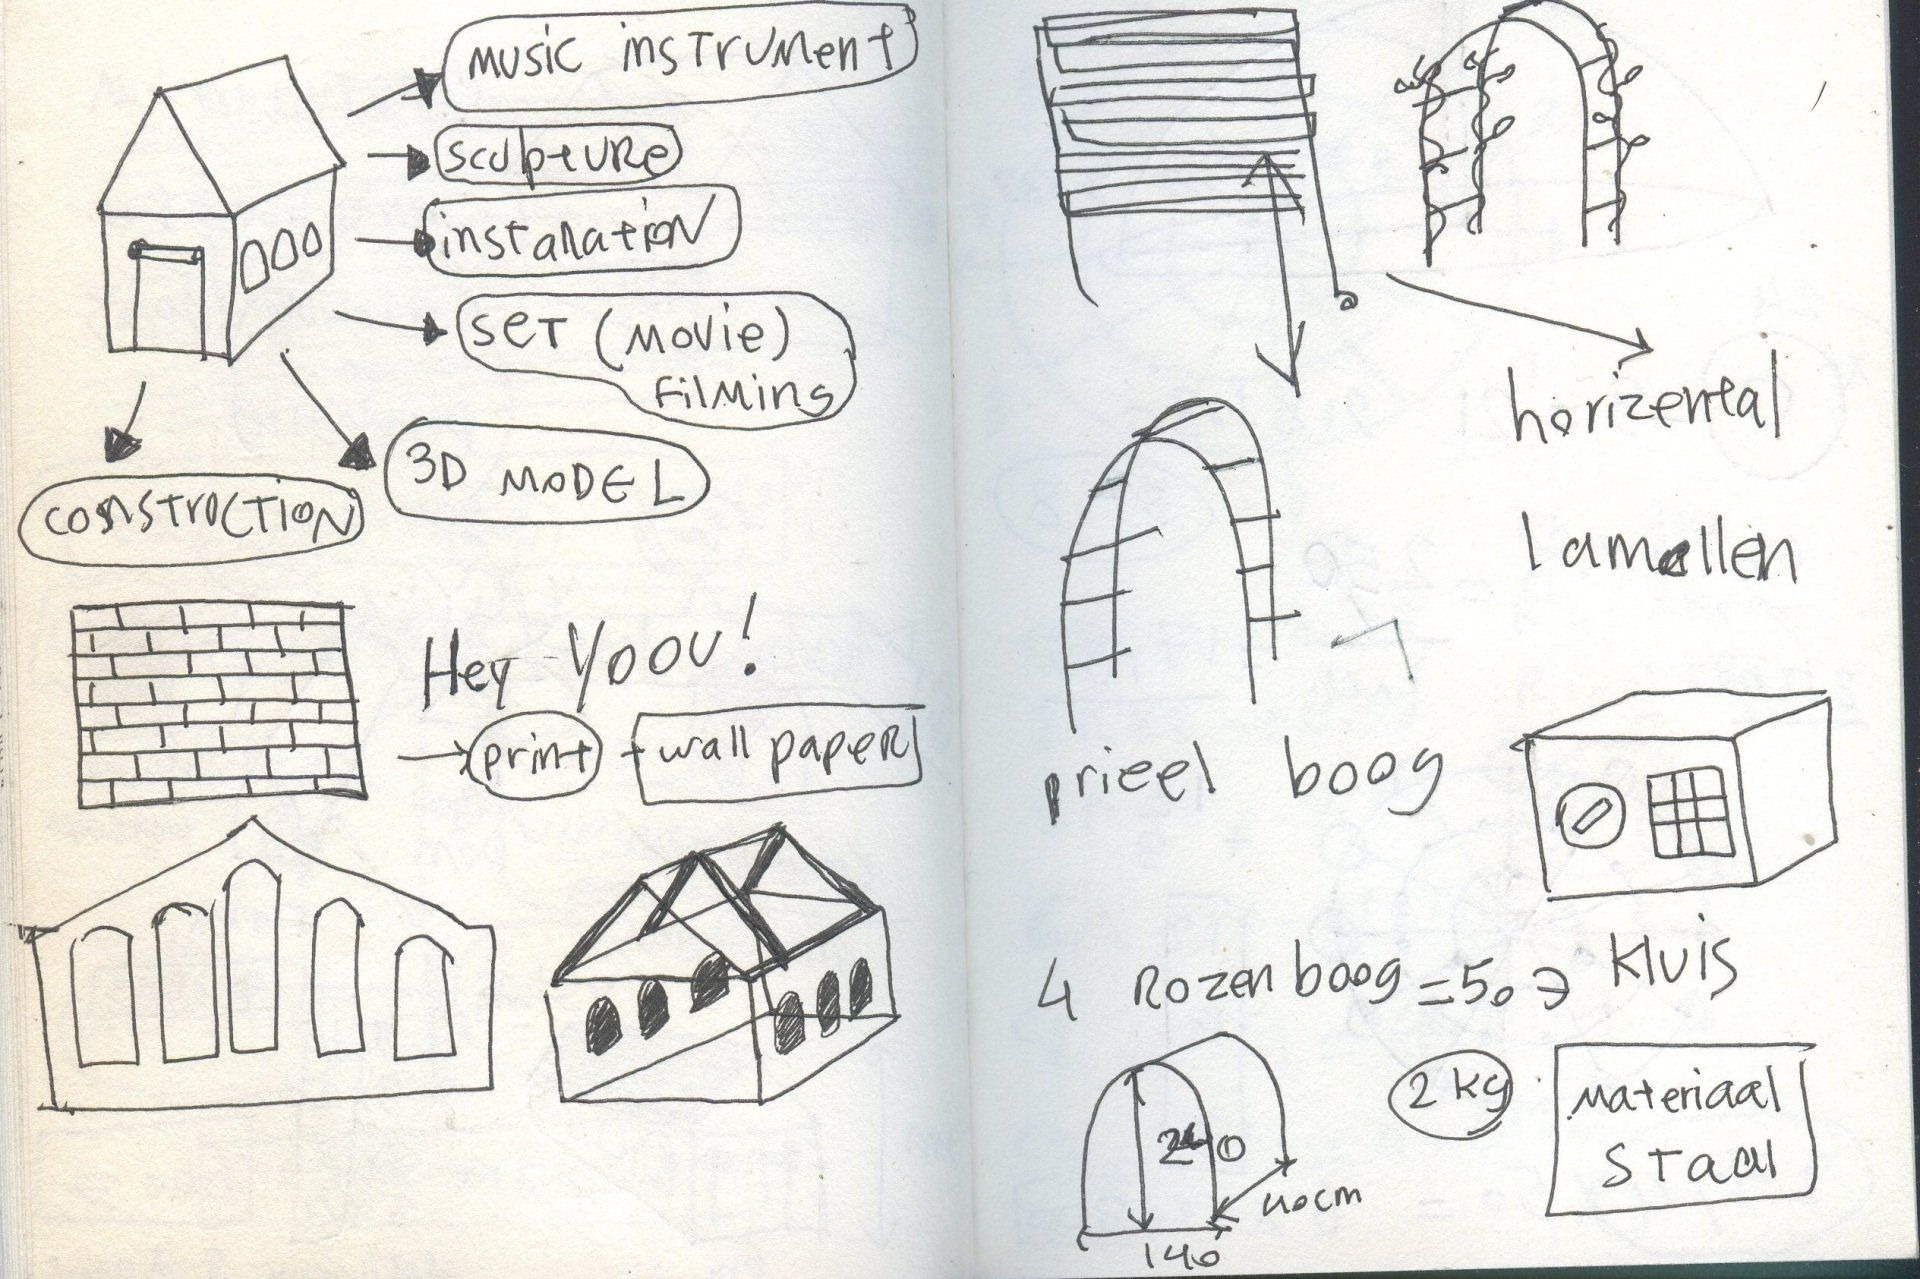 MUSIC INSTRUMENT
SCULPTURE
INSTALLATION
SET (MOVIE)
FILMING
3D MODEL
CONSTRUCTION
Hey YOOU!
print + wall papeR
horizental
lamellen
prieel boog
KLUIS
4 Rozenboog = 50
2 kg
Materiaal
Staal
240
40cm
140